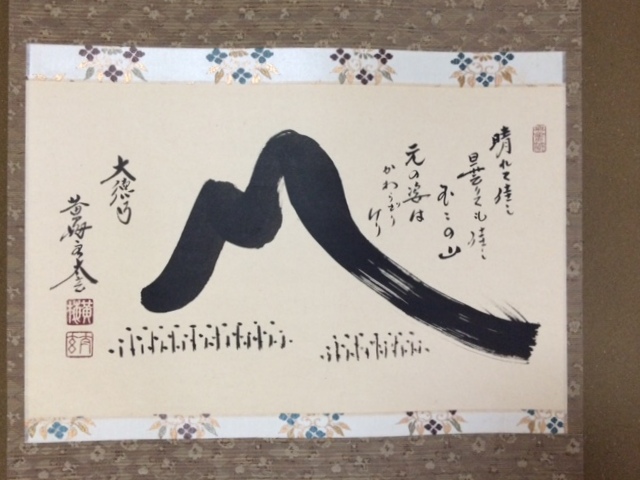 晴れて佳し
曇りても佳し
不二の山
元の姿は
かわらざり
けり
大徳寺
黄梅
黄梅
太玄